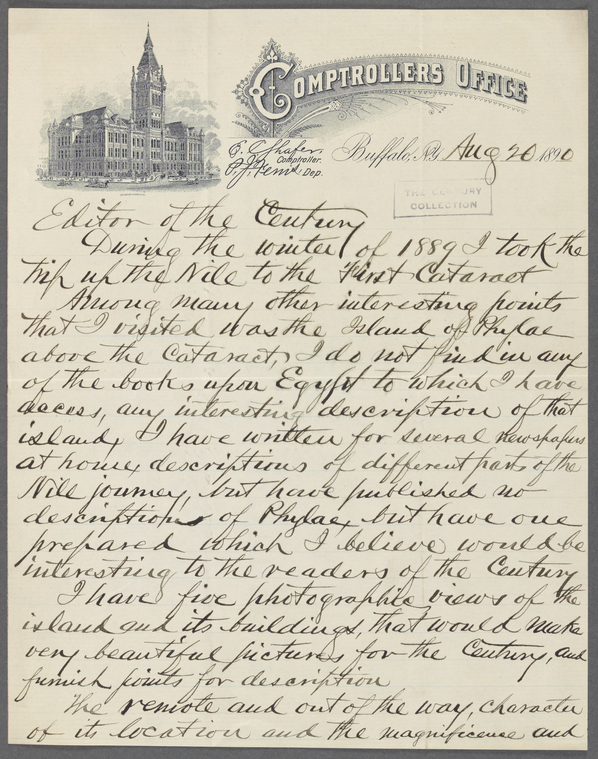 COMPTROLLERS OFFICE
Comptroller.
Dep.
Buffalo, N.Y. Aug 20 1890
THE CENTURY
COLLECTION
Editor of the Century
During the winter of 1889 I took the
trip up the Nile to the First Cataract
Among many other interesting points
that I visited was the Island of Phylae
above the Cataract, I do not find in any
of the books upon Egypt to which I have
access, any interesting description of that
island, I have written for several newspapers
at home, descriptions of different parts of the
Nile journey, but have published no
description of Phylae, but have one
prepared which I believe would be
interesting to the readers of the Century
I have five photographic views of the
island and its buildings, that would make
very beautiful pictures for the Century, and
furnish points for description
The remote and out of the way, character
of its location and the magnificence and